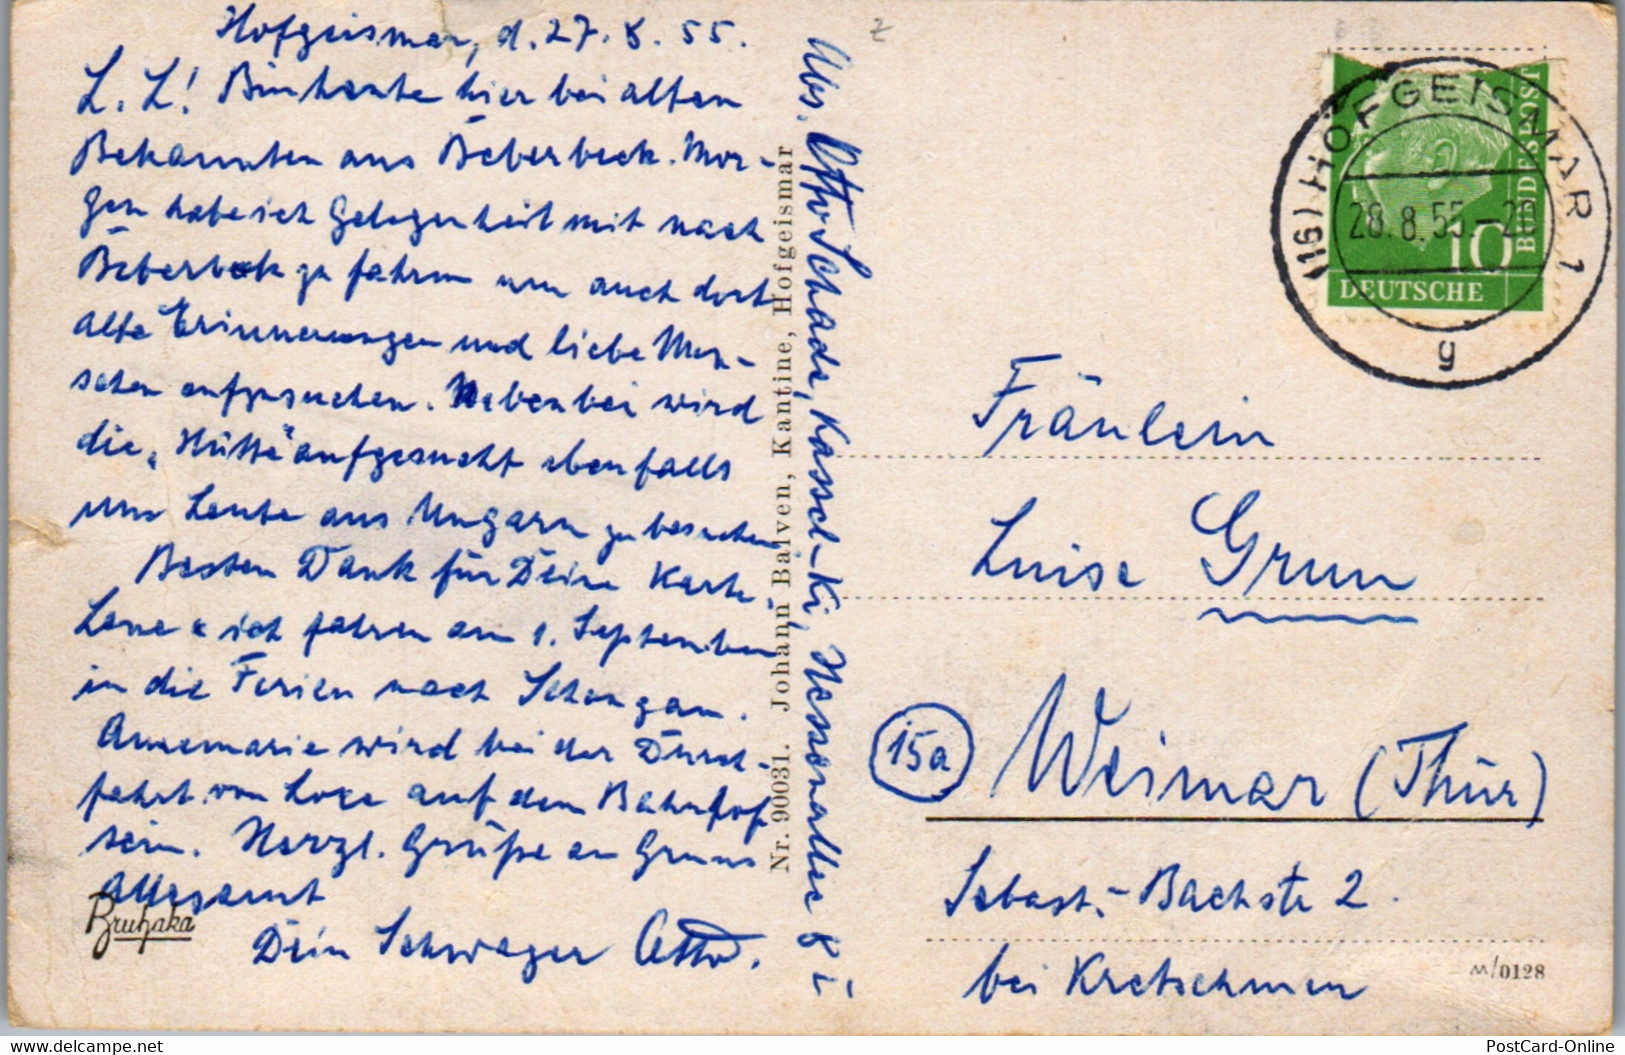 Hofgeismar, d. 27. 8. 55.
L. L! Bin heute hier bei alten
Bekannten aus Beberbeck. Mor-
gen habe ich Gelegenheit mit nach
Beberbeck zu fahren um auch dort
alte Erinnerungen und liebe Men-
schen aufzusuchen. Nebenbei wird
die „Hütte" aufgesucht ebenfalls
um Leute aus Ungarn zu besuchen.
Besten Dank für Deine Karte.
Lene & ich fahren am 1. September
in die Ferien nach Schongau.
Annemarie wird bei der Durch-
fahrt von hier auf dem Bahnhof
sein. Herzl. Grüße an Gruns
Allesamt
Dein Schwager Otto.
Bruhaka
Nr. 90031. Johann Balven, Kantine, Hofgeismar
Abs. Otto Schade, Kassel-Ki, Hessenallee 8 I
(16) HOFGEISMAR 1
28.8.55.-20
g
10
DEUTSCHE
BUNDESPOST
Fräulein
Luise Grun
15a Weimar (Thür)
Sebast.-Bachstr 2.
bei Kretschmer
M/0128
PostCard-Online.com
PostCard-Online